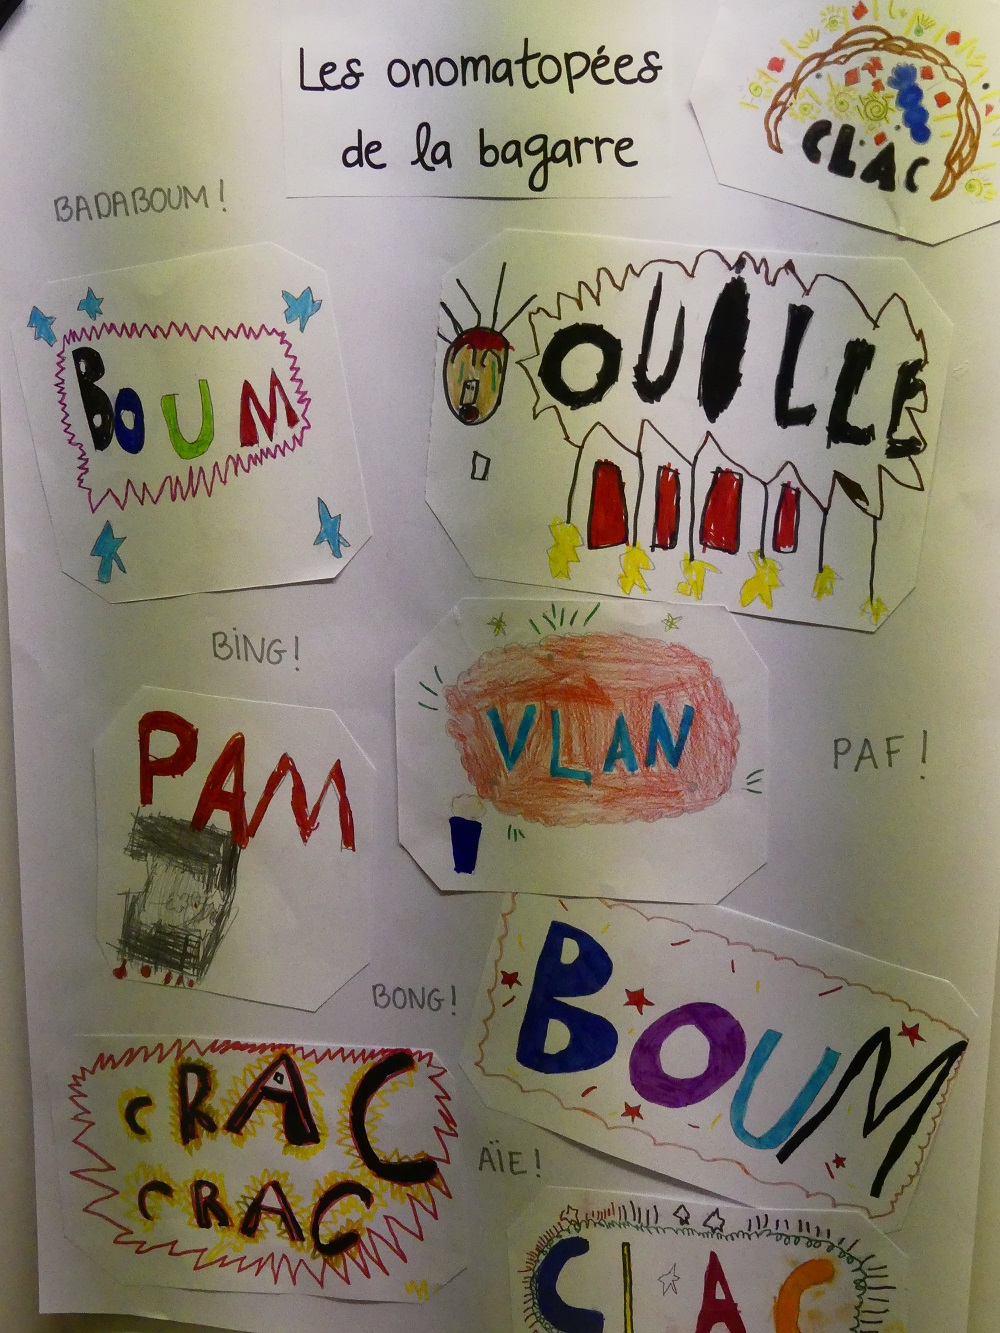 Les onomatopées
de la bagarre
CLAC
BADABOUM!
BOUM
OUILLE
BING!
VLAN
PAM
PAF!
BONG!
BOUM
CRAC
CRAC
AÏE!
CLAC